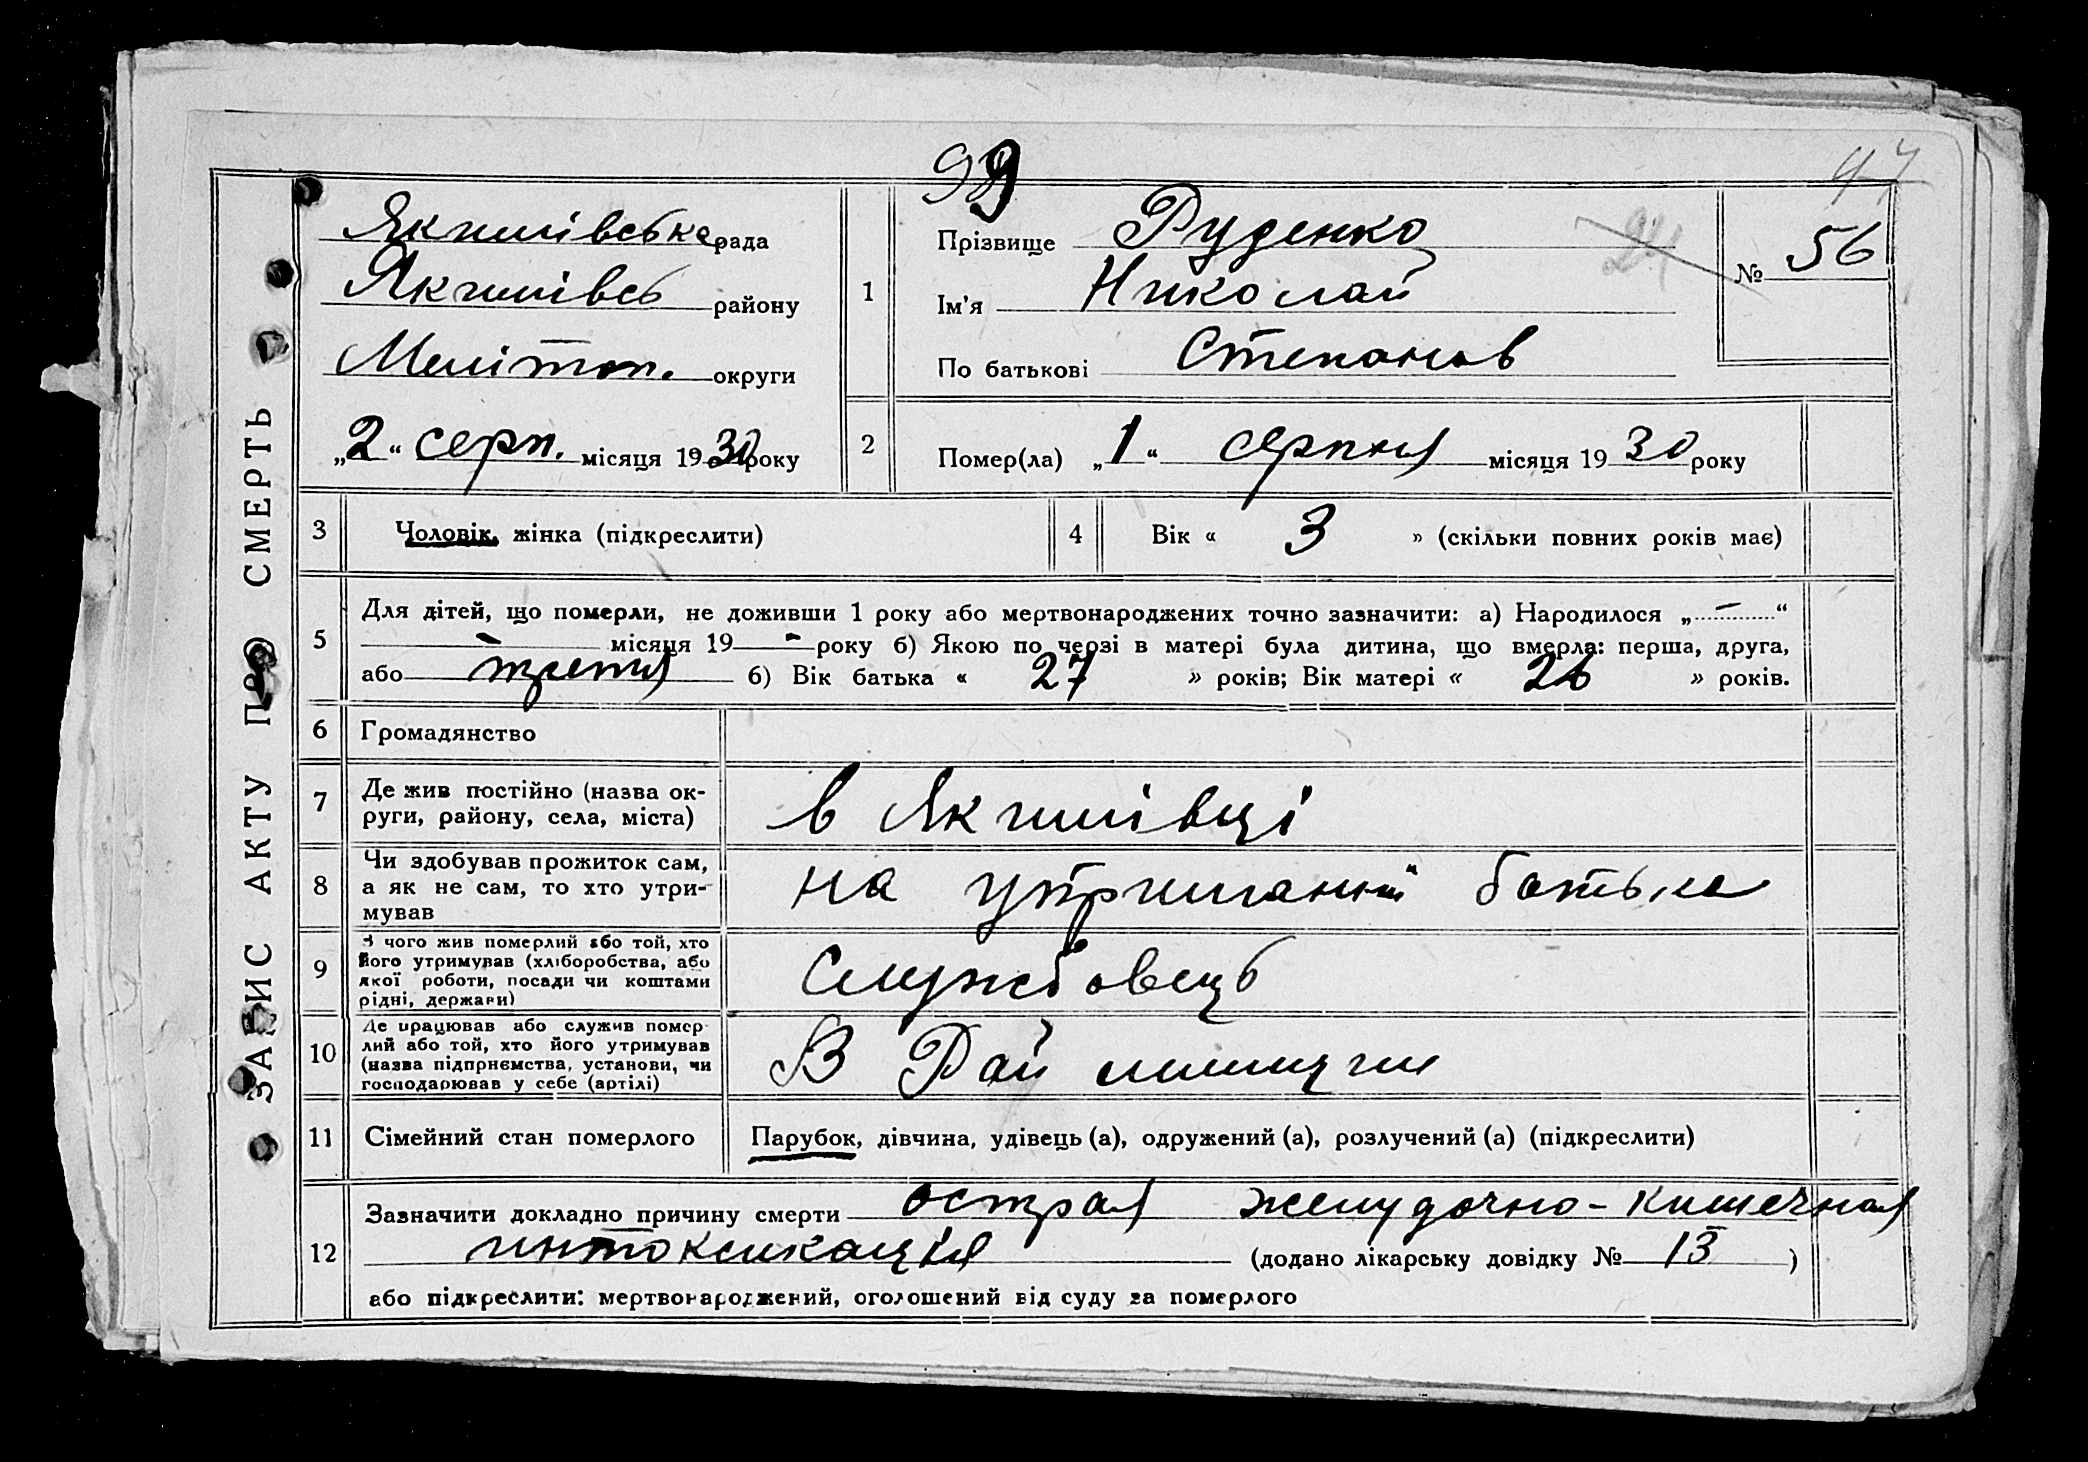 99
47
ЗАПИС АКТУ ПРО СМЕРТЬ
Якимівська рада
Якимівсь району
Мелітоп. округи
„2“ серп. місяця 1930 року
1
Прізвище Руденко
Ім'я Николай
По батькові Степанов
24
№ 56
2
Помер(ла) „1“ серпня місяця 1930 року
3
Чоловік, жінка (підкреслити)
4
Вік « 3 » (скільки повних років має)
5
Для дітей, що померли, не доживши 1 року або мертвонароджених точно зазначити: а) Народилося „–“
– місяця 19 – року б) Якою по черзі в матері була дитина, що вмерла: перша, друга,
або третя б) Вік батька « 27 » років; Вік матері « 26 » років.
6
Громадянство
7
Де жив постійно (назва ок-
руги, району, села, міста)
в Якимівці
8
Чи здобував прожиток сам,
а як не сам, то хто утри-
мував
на утриманні батька
9
З чого жив померлий або той, хто
його утримував (хліборобства, або
якої роботи, посади чи коштами
рідні, держави)
Службовець
10
Де працював або служив помер-
лий або той, хто його утримував
(назва підприємства, установи, чи
господарював у себе (артілі)
В Рай
11
Сімейний стан померлого
Парубок, дівчина, удівець (а), одружений (а), розлучений (а) (підкреслити)
12
Зазначити докладно причину смерти острая желудочно-кишечная
интоксикация (додано лікарську довідку № 13 )
або підкреслити: мертвонароджений, оголошений від суду за померлого